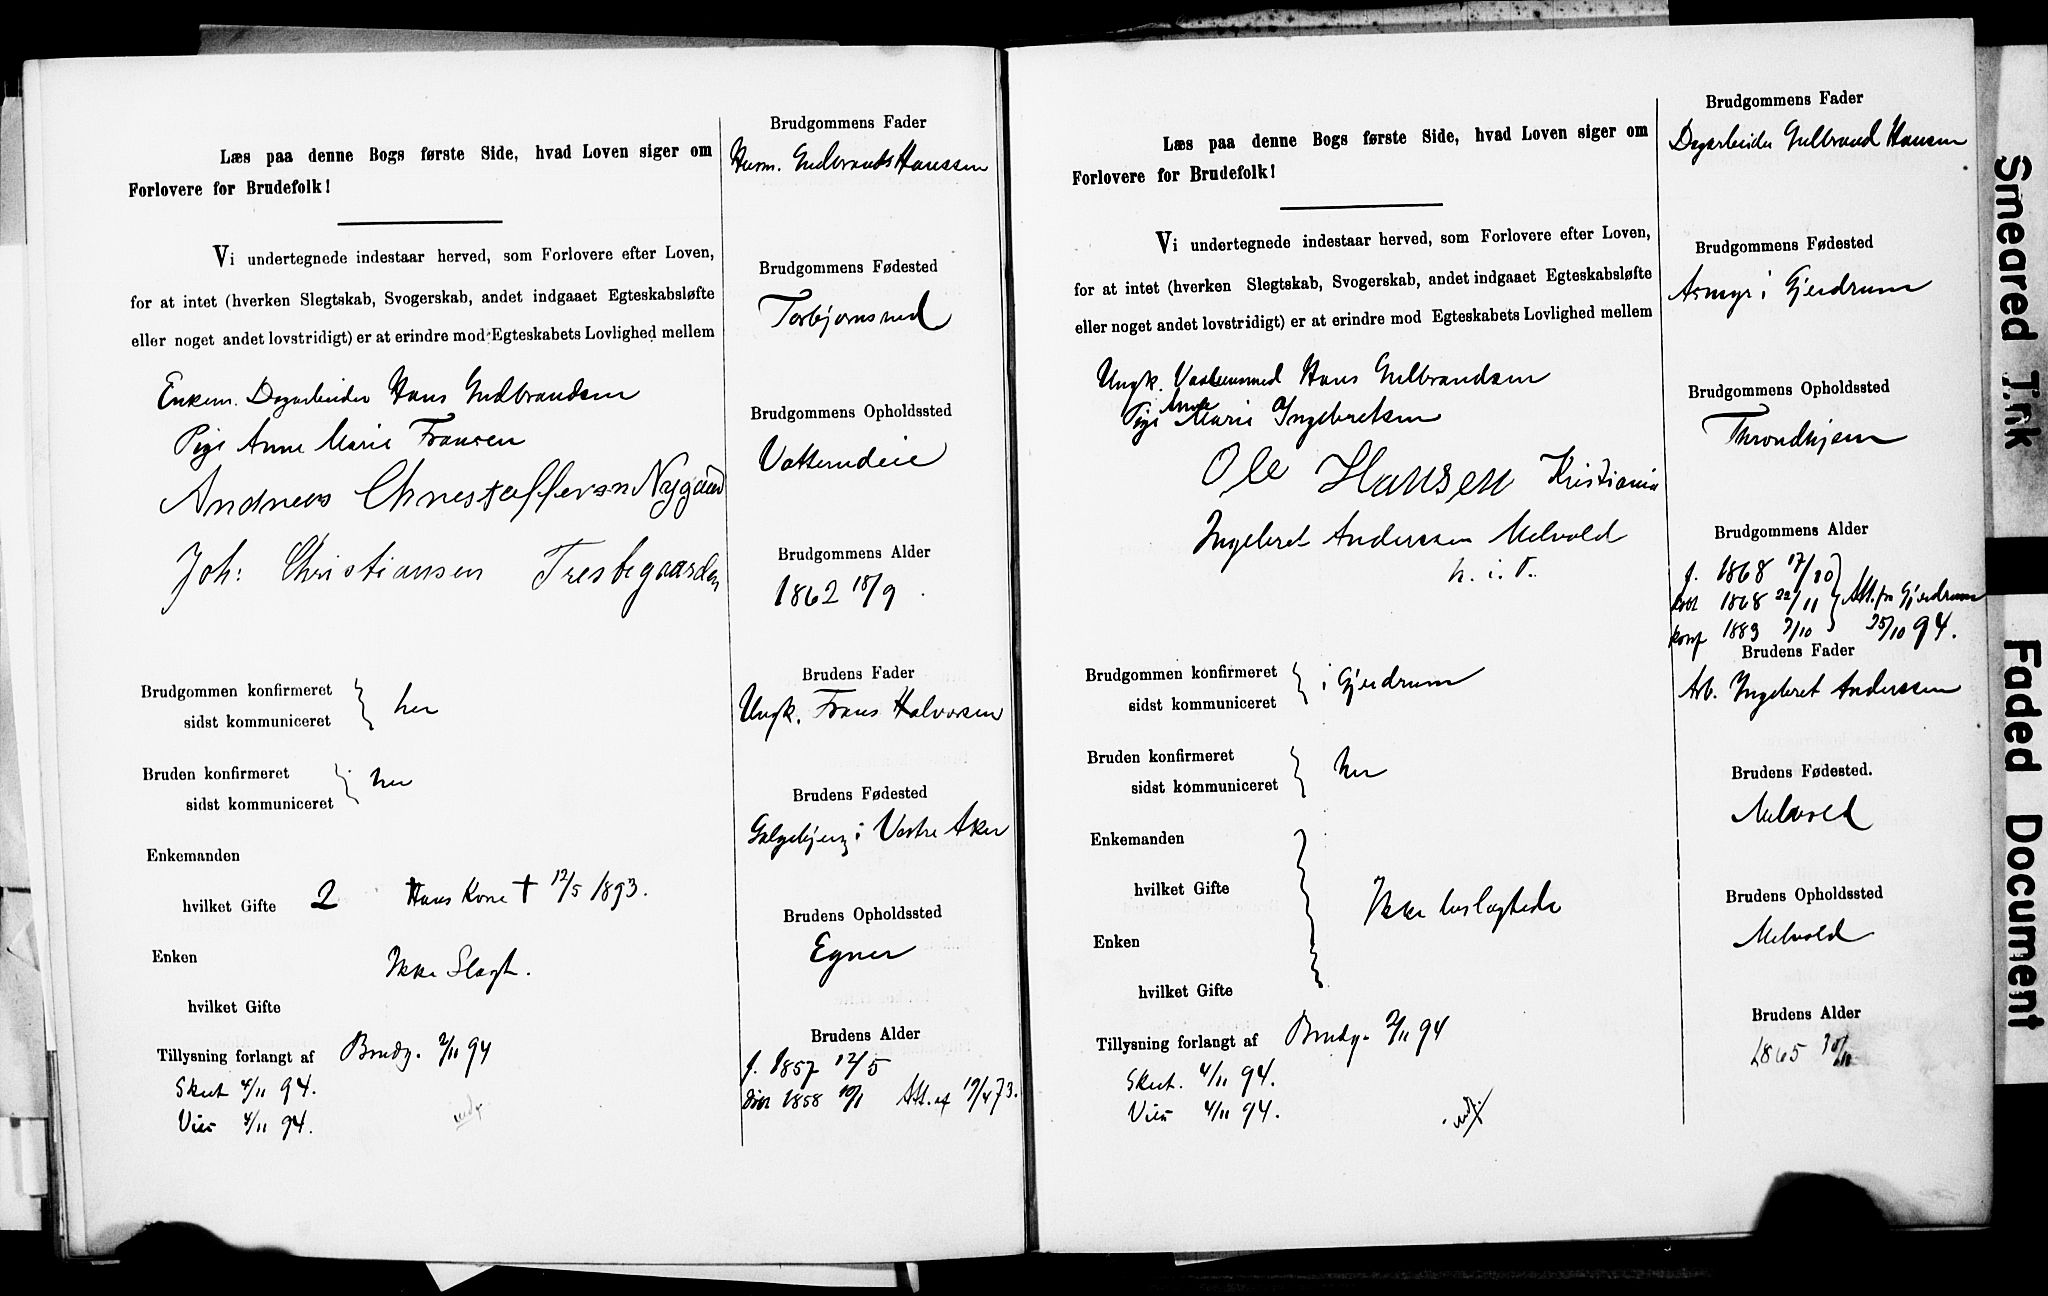 Læs paa denne Bogs første Side, hvad Loven siger om
Forlovere for Brudefolk!
Vi undertegnede indestaar herved, som Forlovere efter Loven,
for at intet (hverken Slegtskab, Svogerskab, andet indgaaet Egteskabsløfte
eller noget andet lovstridigt) er at erindre mod Egteskabets Lovlighed mellem
Enkem. Dagarbeider Hans Gudbrandsen
Pige Anne Marie Fransen
Andreas Christoffersen Nygaard
Joh: Christiansen Tresbegaarden
Brudgommen konfirmeret
sidst kommuniceret } her
Bruden konfirmeret
sidst kommuniceret } her
Enkemanden
hvilket Gifte 2 Hans Kone † 12/5 1893.
Enken
Ikke Slægt.
hvilket Gifte
Tillysning forlangt af Brudg. 2/11 94
Skeet 4/11 94.
Viet 4/11 94.
indf.
Brudgommens Fader
Husm. Gudbrand Hanssen
Brudgommens Fødested
Torbjørnsrud
Brudgommens Opholdssted
Brudgommens Alder
1862 18/9
Brudens Fader
Ungk. Frans Halvorsen
Brudens Fødested
Galgebjerg i Vestre Aker
Brudens Opholdssted
Egner
Brudens Alder
f. 1857 12/5
døbt 1858 10/1 Att. af 19/4 73.
Læs paa denne Bogs første Side, hvad Loven siger om
Forlovere for Brudefolk!
Vi undertegnede indestaar herved, som Forlovere efter Loven,
for at intet (hverken Slegtskab, Svogerskab, andet indgaaet Egteskabsløfte
eller noget andet lovstridigt) er at erindre mod Egteskabets Lovlighed mellem
Ungk. Hans Gulbrandsen
Anne
Pige Marie Ingebretsen
Ole Hansen Kristiania
Ingebret Anderssen Melvold
Brudgommen konfirmeret
sidst kommuniceret } i Gjerdrum
Bruden konfirmeret
sidst kommuniceret } her
Enkemanden
hvilket Gifte
Ikke beslægtede
Enken
hvilket Gifte
Tillysning forlangt af Brudg. 2/11 94
Skeet. 4/11 94.
Viet 4/11 94.
indf.
Brudgommens Fader
Dagarbeider Gulbrand Hansen
Brudgommens Fødested
Asmyr i Gjerdrum
Brudgommens Opholdssted
Throndhjem
Brudgommens Alder
f. 1868 17/10
døbt 1868 22/11 } Att. fra Gjerdrum
konf 1883 7/10 25/10 94.
Brudens Fader
Arb. Ingebret Anderssen
Brudens Fødested.
Melvold
Brudens Opholdssted
Melvold
Brudens Alder
1865
Smeared Ink
Faded Document